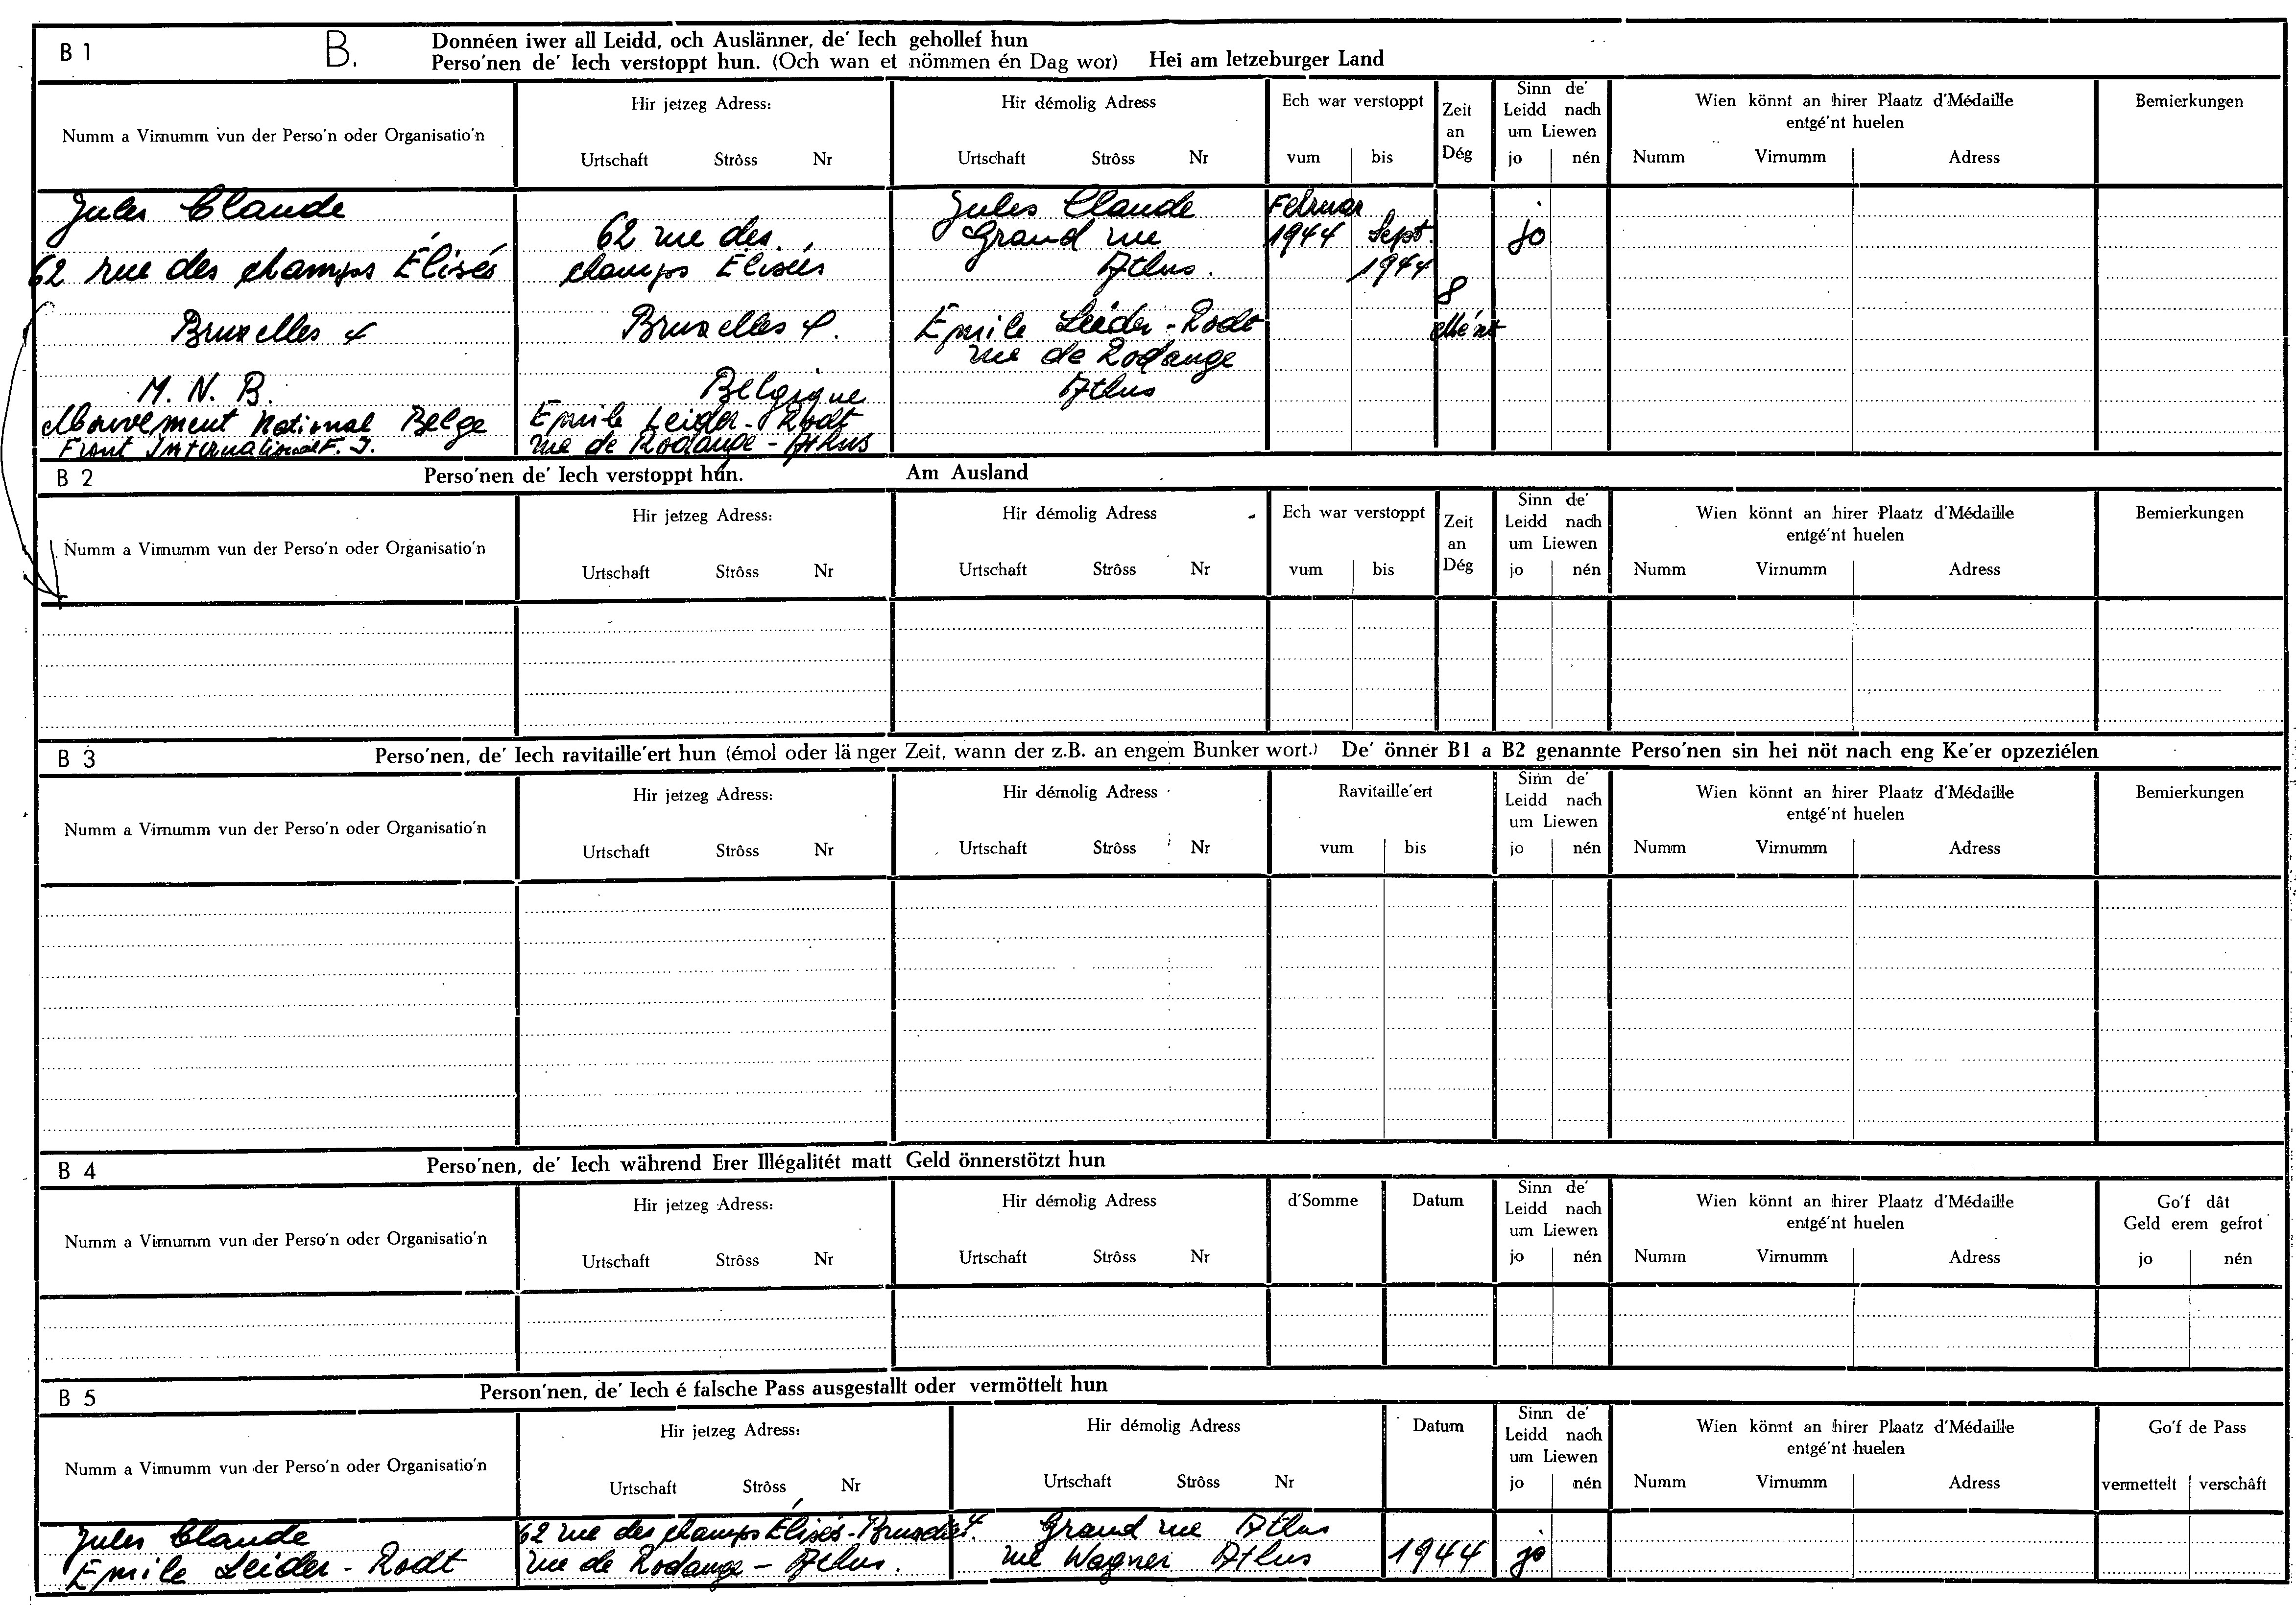 B 1 B. Donnéen iwer all Leidd, och Auslänner, de' Iech gehollef hun
Perso'nen de' Iech verstoppt hun. (Och wan et nömmen én Dag wor) Hei am letzeburger Land
Numm a Virnumm vun der Perso'n oder Organisatio'n
Hir jetzeg Adress:
Urtschaft Strôss Nr
Hir démolig Adress
Urtschaft Strôss Nr
Ech war verstoppt
vum bis
Zeit
an
Dég
Sinn de'
Leidd nach
um Liewen
jo nén
Wien könnt an hirer Plaatz d'Médaille
entgé'nt huelen
Numm Virnumm Adress
Bemierkungen
Jules Claude
62 rue des champs Élisés
Bruxelles 4
M. N. B.
Mouvement National Belge
Front International F. I.
62 rue des
champs Élisées
Bruxelles 4.
Belgique
Emile Leider-Rodt
rue de Rodange - Athus
Jules Claude
Grand rue
Athus.
Emile Leider-Rodt
rue de Rodange
Athus
Februar
1944
Sept.
1944
8
Mé'nt
jo
B 2 Perso'nen de' Iech verstoppt hun. Am Ausland
Numm a Virnumm vun der Perso'n oder Organisatio'n
Hir jetzeg Adress:
Urtschaft Strôss Nr
Hir démolig Adress
Urtschaft Strôss Nr
Ech war verstoppt
vum bis
Zeit
an
Dég
Sinn de'
Leidd nach
um Liewen
jo nén
Wien könnt an hirer Plaatz d'Médaille
entgé'nt huelen
Numm Virnumm Adress
Bemierkungen
B 3 Perso'nen, de' Iech ravitaille'ert hun (émol oder länger Zeit, wann der z.B. an engem Bunker wort.) De' önner B1 a B2 genannte Perso'nen sin hei nöt nach eng Ke'er opzeziélen
Numm a Virnumm vun der Perso'n oder Organisatio'n
Hir jetzeg Adress:
Urtschaft Strôss Nr
Hir démolig Adress
Urtschaft Strôss Nr
Ravitaille'ert
vum bis
Sinn de'
Leidd nach
um Liewen
jo nén
Wien könnt an hirer Plaatz d'Médaille
entgé'nt huelen
Numm Virnumm Adress
Bemierkungen
B 4 Perso'nen, de' Iech während Erer Illégalitét matt Geld önnerstötzt hun
Numm a Virnumm vun der Perso'n oder Organisatio'n
Hir jetzeg Adress:
Urtschaft Strôss Nr
Hir démolig Adress
Urtschaft Strôss Nr
d'Somme
Datum
Sinn de'
Leidd nach
um Liewen
jo nén
Wien könnt an hirer Plaatz d'Médaille
entgé'nt huelen
Numm Virnumm Adress
Go'f dât
Geld erem gefrot
jo nén
B 5 Person'nen, de' Iech é falsche Pass ausgestallt oder vermöttelt hun
Numm a Virnumm vun der Perso'n oder Organisatio'n
Hir jetzeg Adress:
Urtschaft Strôss Nr
Hir démolig Adress
Urtschaft Strôss Nr
Datum
Sinn de'
Leidd nach
um Liewen
jo nén
Wien könnt an hirer Plaatz d'Médaille
entgé'nt huelen
Numm Virnumm Adress
Go'f de Pass
vermettelt verschâft
Jules Claude 62 rue des champs Élisés-Bruxelles 4. Grand rue Athus
Emile Leider-Rodt rue de Rodange - Athus. rue Wagner Athus 1944 jo